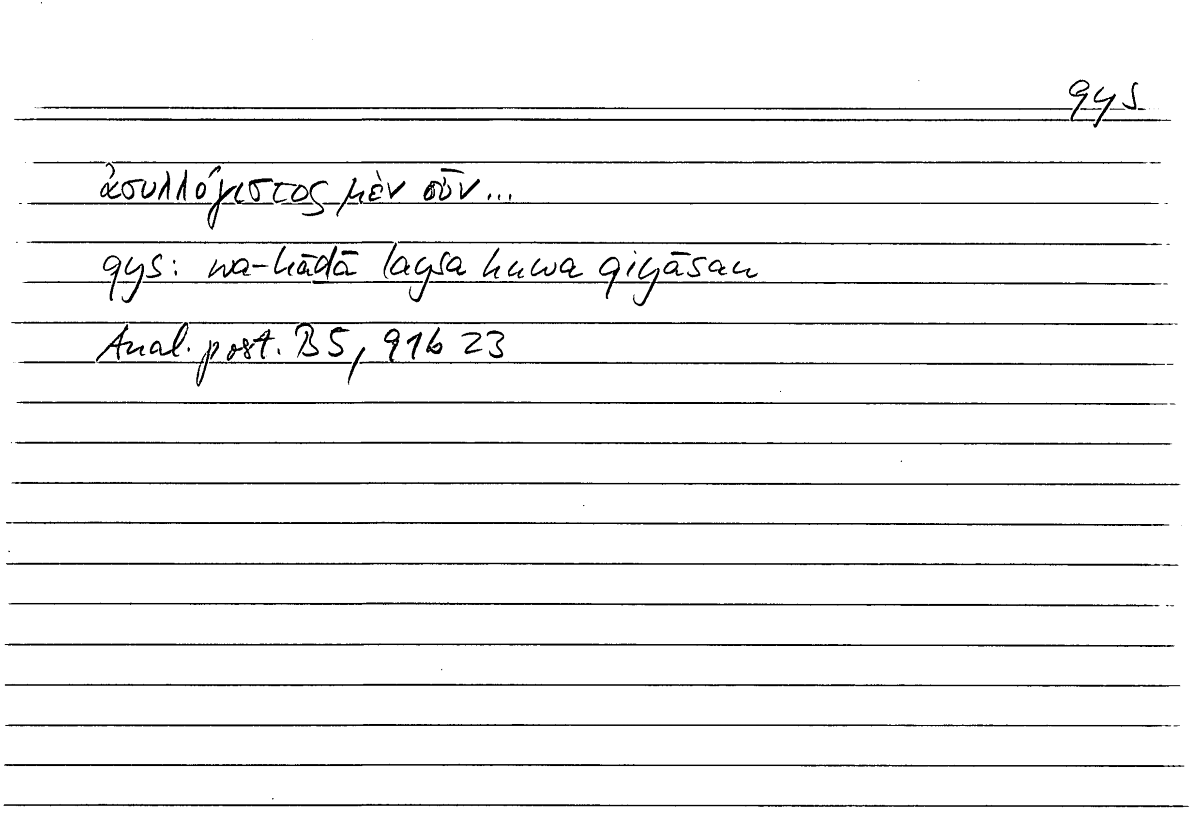 qys
ἀσυλλόγιστος μὲν οὖν...
qys: wa-hāḏā laysa huwa qiyāsan
Anal. post. B5, 91b 23